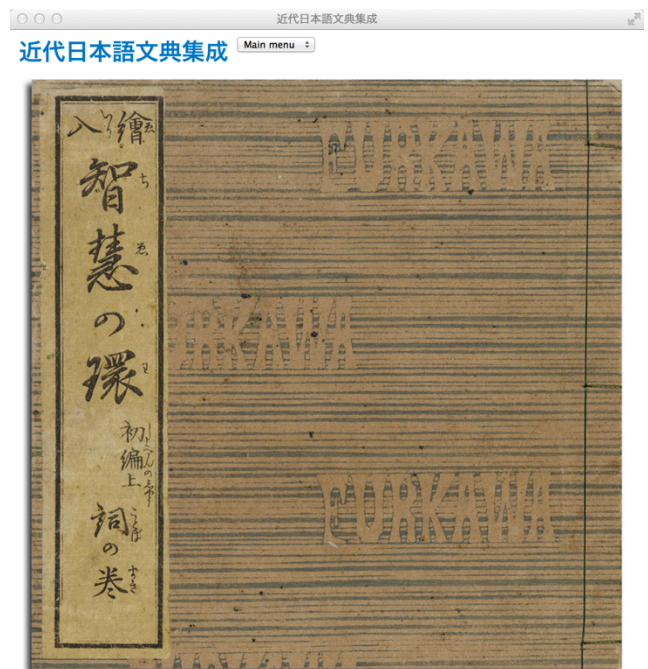 近代日本語文典集成
近代日本語文典集成
Main menu
繪入
智慧の環
ちゑ
わ
初編上
詞の巻
ことば
まき
FURKAWA
FURKAWA
FURKAWA